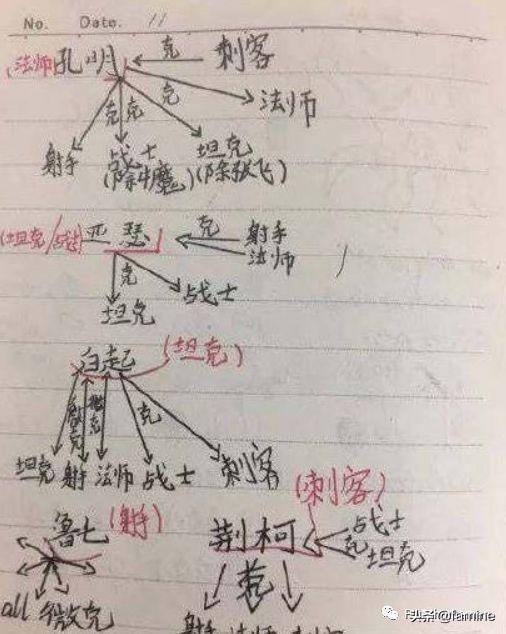 No. Date. 11
(法师)孔明 克 刺客
克 克 克 法师
射手 战士 坦克
(除牛魔) (除张飞)
(坦克/战士) 亚瑟 克 射手
法师
克 战士
坦克
白起 (坦克)
微克 克
坦克 射手 法师 战士 刺客
(刺客)
鲁七 (射手) 荆柯 战士
克 坦克
克
all 微克
射手 法师 刺客
头条 @famine